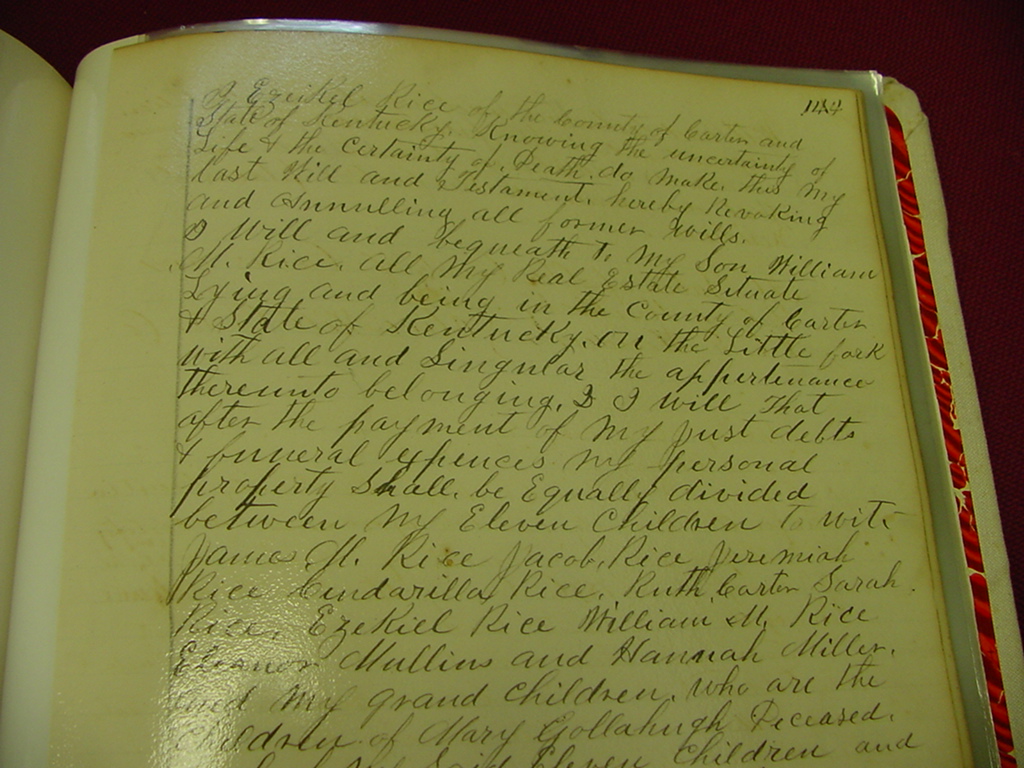 144
I Ezekiel Rice of the County of Carter and
State of Kentucky, Knowing the uncertainty of
Life & the certainty of Death do make this my
last Will and Testament, hereby Revoking
and Annulling all former Wills.
I Will and bequeath to my Son William
M. Rice. all my Real Estate Situate
Lying and being in the County of Carter
& State of Kentucky. on the Little fork
with all and Singular the appertenance
thereunto belonging. I I will that
after the payment of my just debts
& funeral expences my personal
property Shall be Equally divided
between my Eleven Children to wit.
James M. Rice Jacob Rice Jeremiah
Rice Cindarilla Rice. Ruth Carter Sarah
Rice. Ezekiel Rice William M. Rice
Eleanor Mullins and Hannah Miller.
and my grand children. who are the
children of Mary Gollahugh Deceased.
Said Eleven Children and